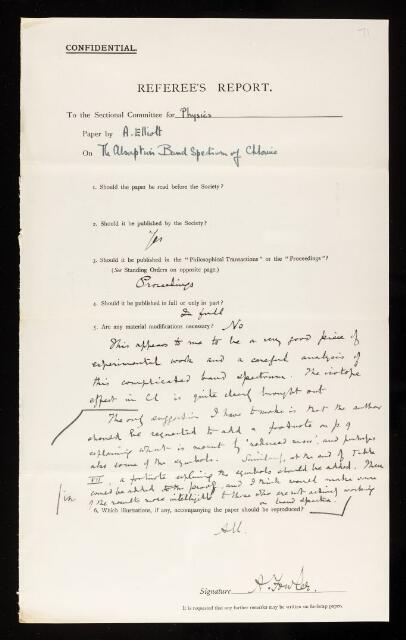 71
CONFIDENTIAL.
REFEREE'S REPORT.
To the Sectional Committee for Physics
Paper by A. Elliott
On The Absorption Band Spectrum of Chlorine
1. Should the paper be read before the Society?
2. Should it be published by the Society?
Yes
3. Should it be published in the "Philosophical Transactions" or the "Proceedings"?
(See Standing Orders on opposite page.)
Proceedings
4. Should it be published in full or only in part?
In full
5. Are any material modifications necessary? No
This appears to me to be a very good piece of
experimental work and a careful analysis of
this complicated band spectrum. The isotope
effect in Cl is quite clearly brought out
The only suggestion I have to make is that the author
should be requested to add a footnote on p. 9
explaining what is meant by 'reduced mass', and perhaps
also some of the symbols. Similarly, at the end of Table
VII, a footnote explaining the symbols should be added. These
could be added to the proof, and I think would make some
of the results more intelligible to those who are not actively working
on band spectra.
/in
6. Which illustrations, if any, accompanying the paper should be reproduced?
All.
Signature A. Fowler.
It is requested that any further remarks may be written on foolscap paper.